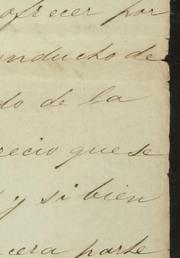 ofrecer por
onducho de
do de la
recio que se
y si bien
cera parte